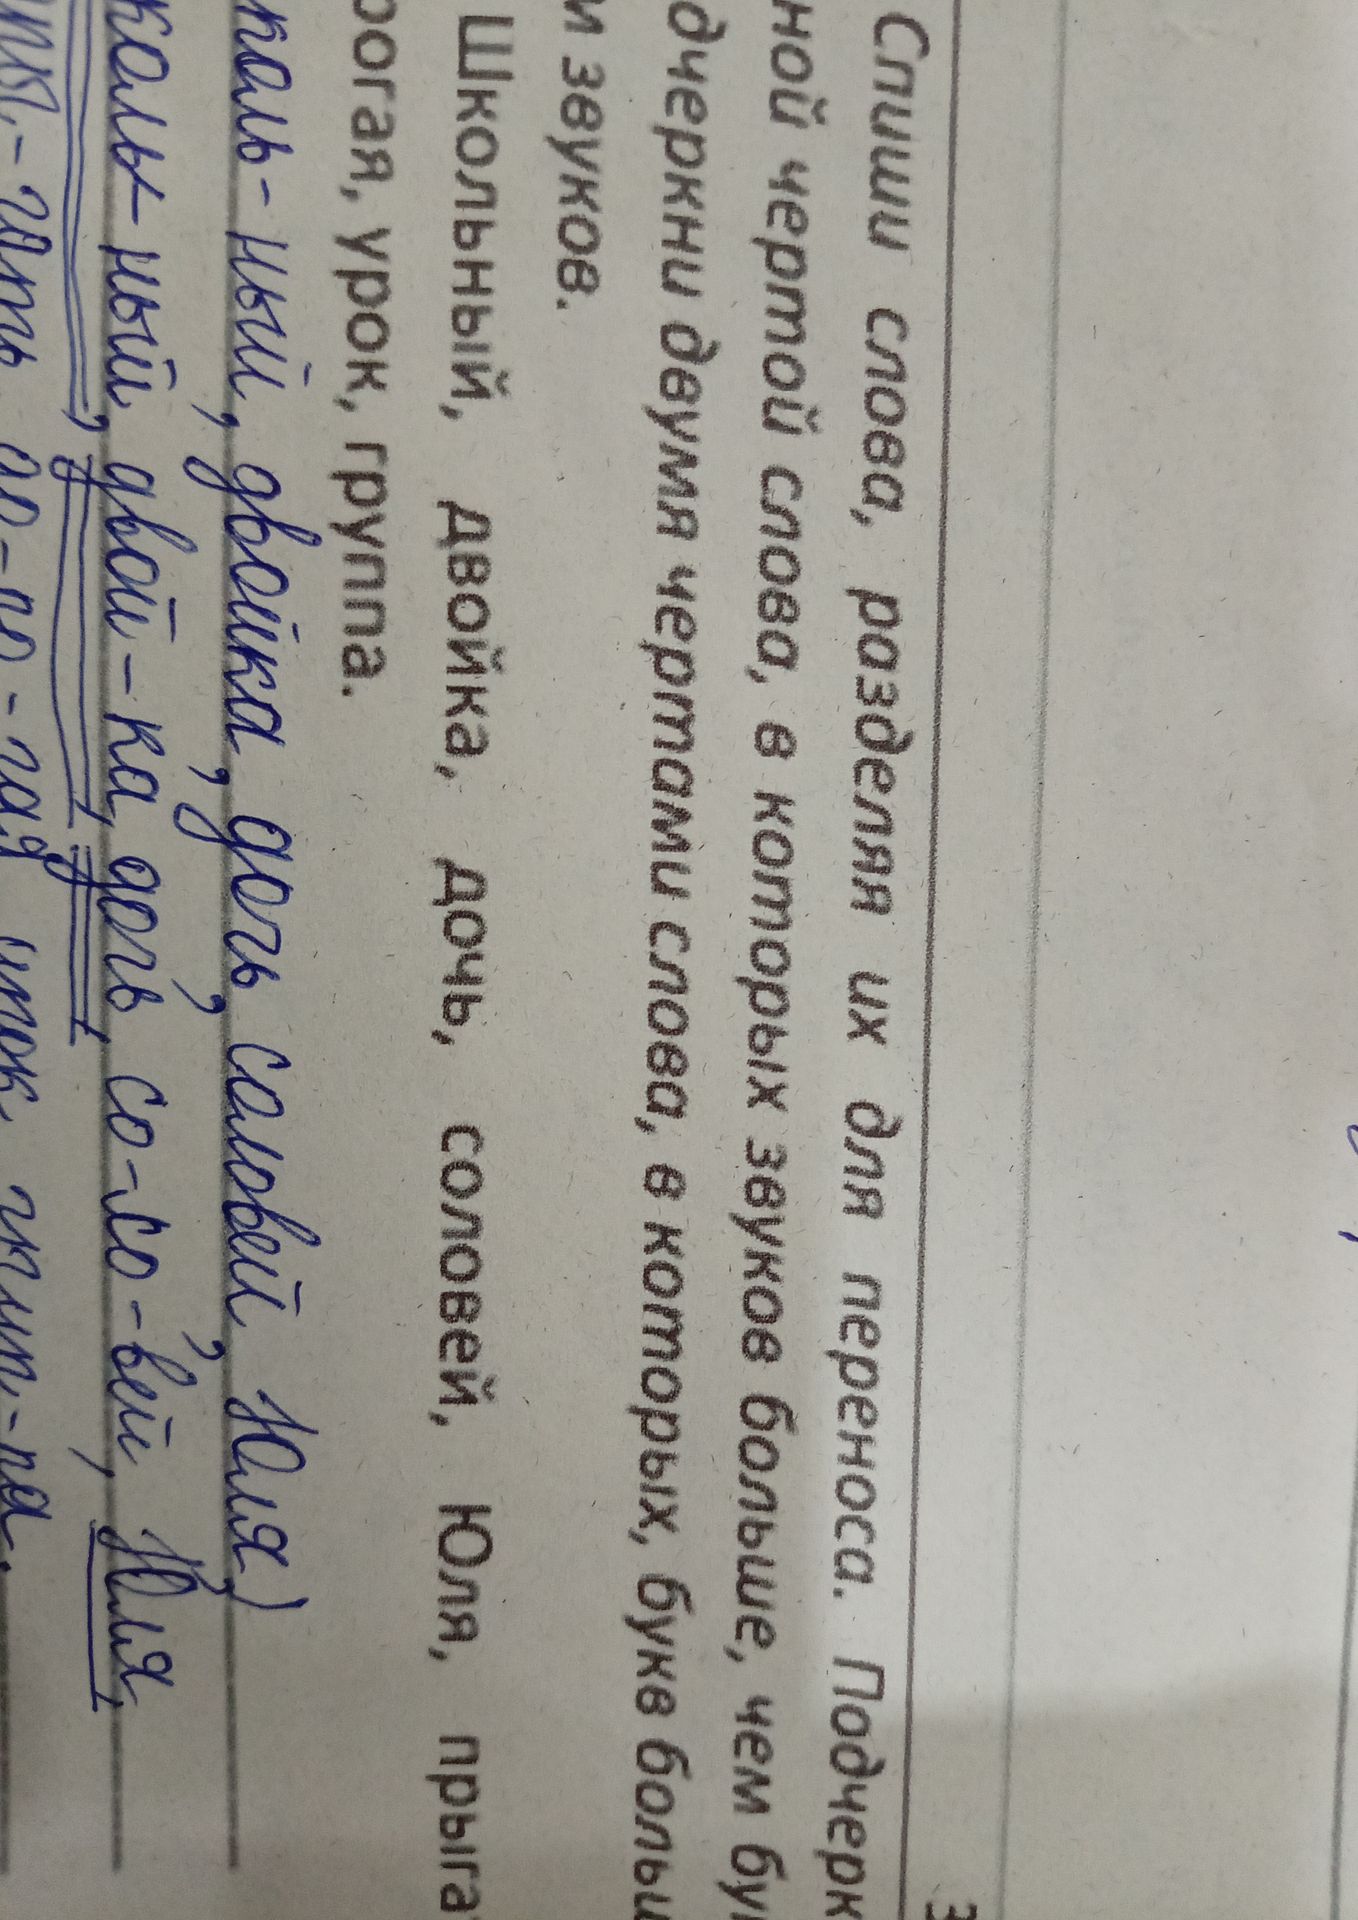 Спиши слова, разделяя их для переноса. Подчерк
ной чертой слова, в которых звуков больше, чем бу
дчеркни двумя чертами слова, в которых, букв больш
и звуков.
Школьный, двойка, дочь, соловей, Юля, прыгат
рогая, урок, группа.
каль-ный, двойка, дочь соловей Юля)
коль-ный, двой-ка, дочь, со-ло-вей, Юля,
гать, до-ро-гая урок, груп-па.